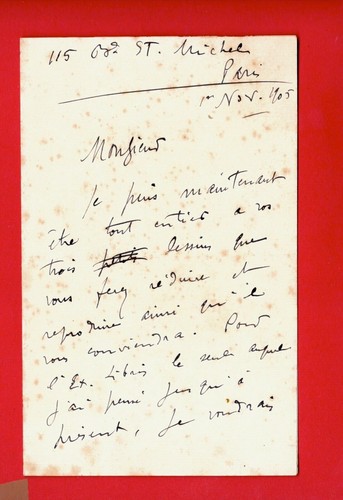 115 Bd St. Michel
Paris
1er Nov. 1905
Monsieur
Je puis maintenant
être tout entier à vos
trois petits dessins que
vous ferez réduire et
reproduire ainsi qu'il
vous conviendra. Pour
l'Ex. Libris le seul auquel
j'ai pensé jusqu'à
présent, je voudrais